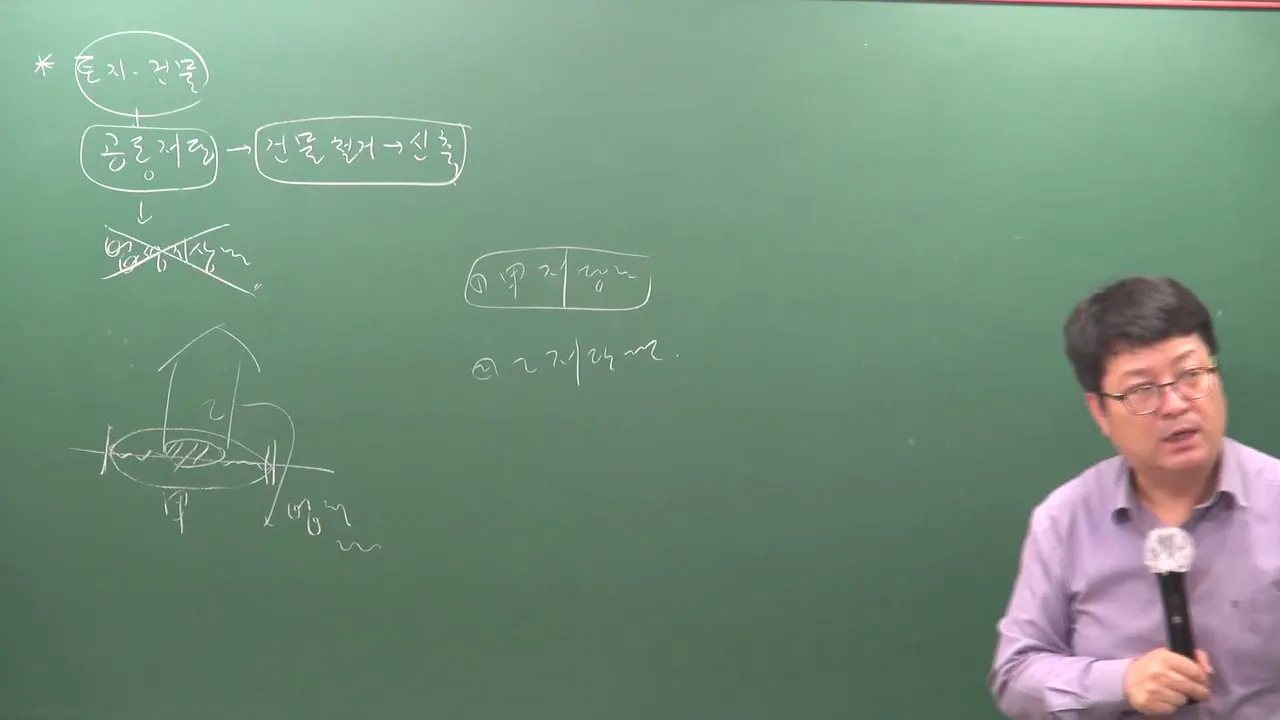 * 토지·건물
공동저당 → 건물철거 → 신축
↓
법정지상권
① 甲 지 | 상권
② 乙 지
乙
甲 법정